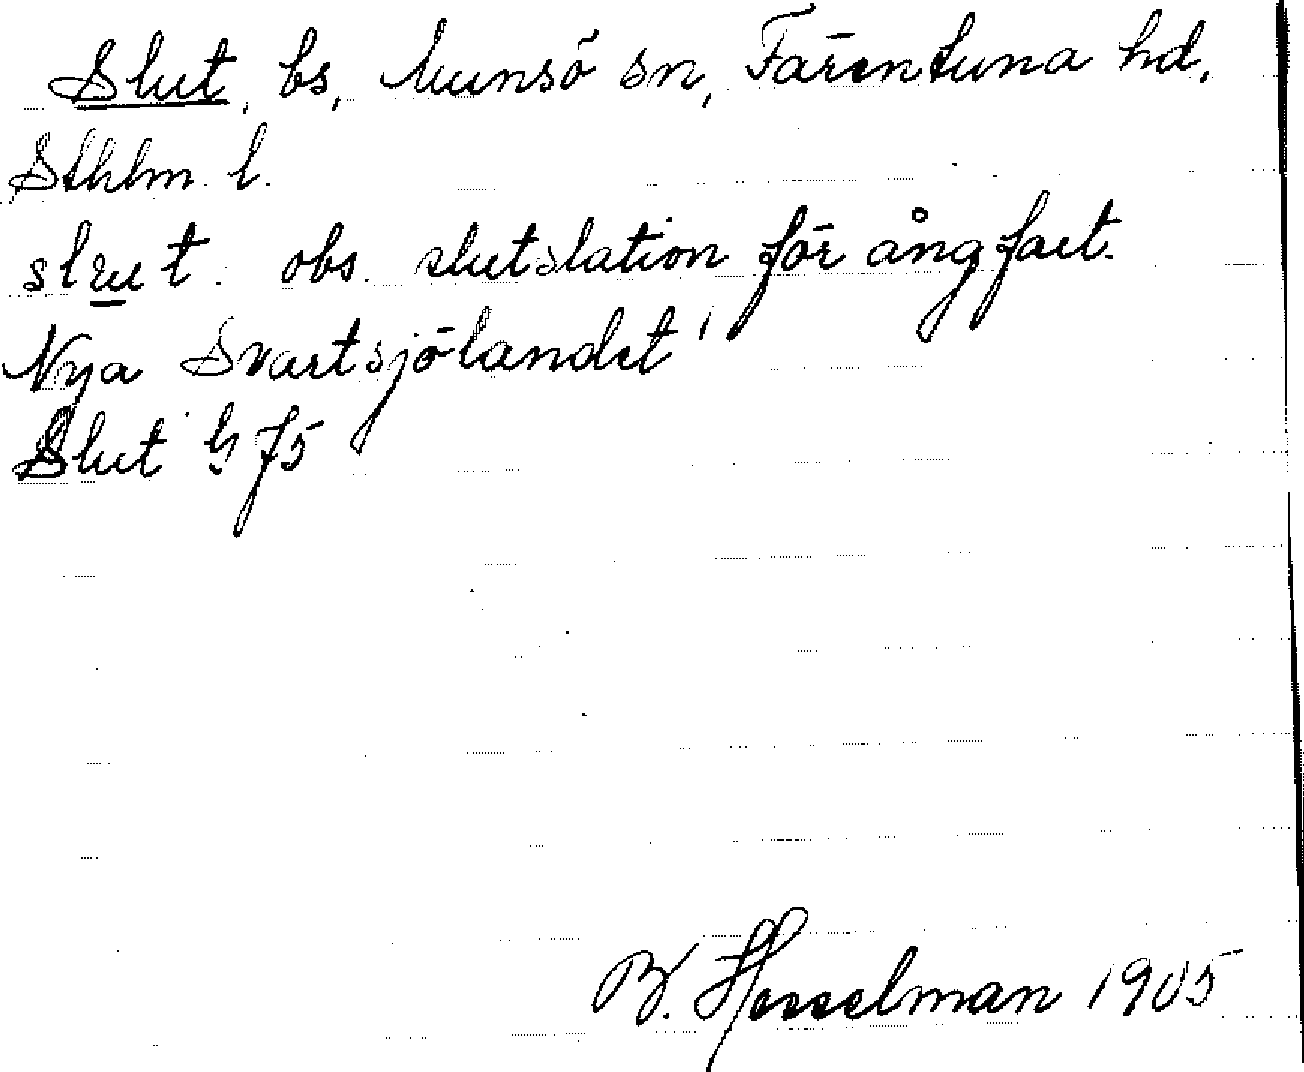 Slut, bs, Munsö sn, Färentuna hd,
Sthlm. l.
slut. obs. slutstation för ångfart.
Nya Svartsjölandet
Slut G 75
B. Hesselman 1905